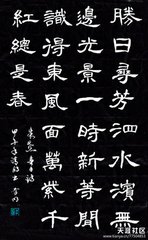 勝日尋芳泗水濱無
邊光景一時新等閒
識得東風面萬紫千
紅總是春
朱熹春日詩
天涯社区